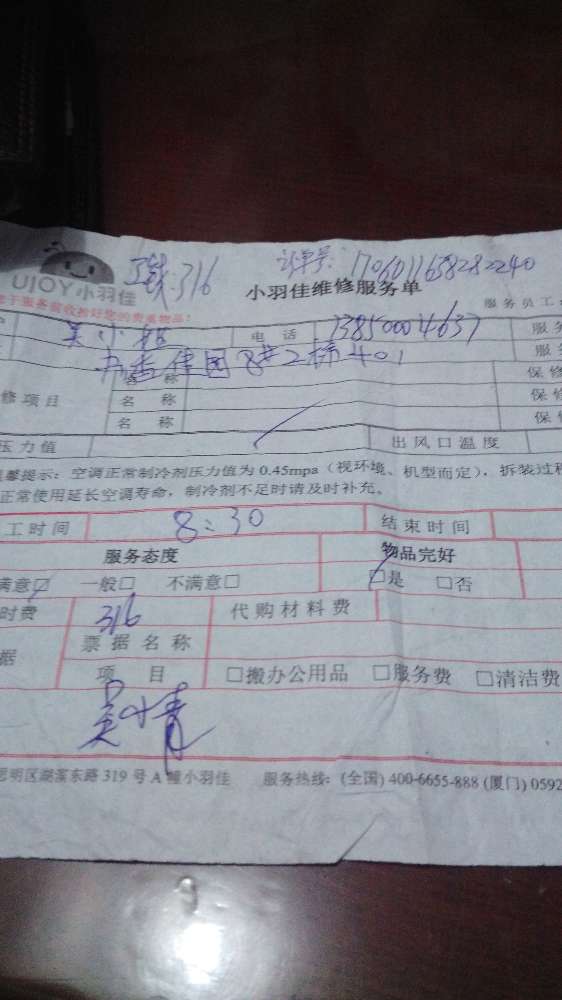 订单号: 1706011658282240
316
UJOY小羽佳
小羽佳维修服务单
服务员工
于服务前收拾好您的贵重物品!
吴小姐 电话 13850004637 服务
佳园8#2梯401 服
名称 保修
修项目 名称 保修
名称 保修
压力值 出风口温度
馨提示: 空调正常制冷剂压力值为 0.45mpa (视环境、机型而定), 拆装过程
正常使用延长空调寿命, 制冷剂不足时请及时补充。
工时间 8:30 结束时间
服务态度 物品完好
满意☑ 一般□ 不满意□ ☑是 □否
时费 316 代购材料费
据 票据名称
项目 □搬办公用品 □服务费 □清洁费
吴小青
思明区湖滨东路 319 号 A 幢小羽佳 服务热线: (全国) 400-6655-888 (厦门) 0592